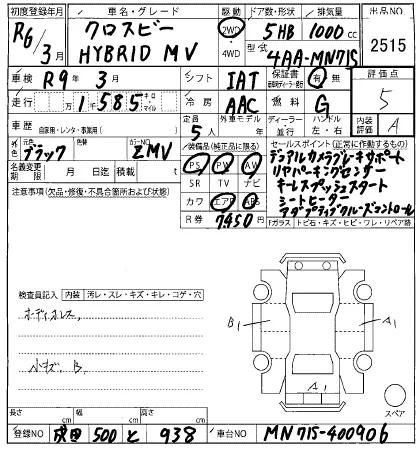 初度登録年月 車名・グレード 駆動 ドア数・形状 排気量 出品NO
R6/3月 クロスビー HYBRID MV 2WD 4WD 5HB 1000cc 2515
型式 4AA-MN71S
車検 R9年3月 シフト IAT 保証書 有 無 評価点
走行 1585 キロ マイル 冷房 AAC 燃料 G 5
車歴 自家用・レンタ・事業用( ) 定員 5人 外車モデル年 ディーラー 並行 ハンドル 左・右 内装 A
元色 ブラック 色替 カラーNO ZMV 装備品(純正品に限る) セールスポイント(正常に作動するもの)
名義変更期限 月 日迄 積載 t PS PW AW デュアルカメラブレーキサポート
注意事項(欠品・修復・不具合箇所および状態) SR TV ナビ リヤパーキングセンサー
カワ エアB ABS キーレスプッシュスタート
R券 7450 シートヒーター
アダプティブクルーズコントロール
Fガラス トビ石・キズ・ヒビ・ワレ・リペア跡
検査員記入 内装 汚レ・スレ・キズ・キレ・コゲ・穴
ボディオレス、
小キズ B
B1 A1
A1
スペア
長さ cm 幅 cm 高さ cm
登録NO 成田 500 と 938 車台NO MN71S-400906